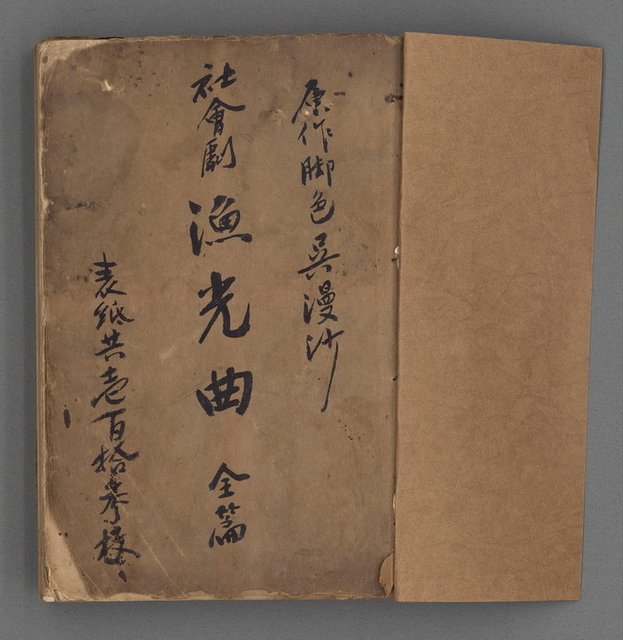 原作脚色吳漫沙
社會劇 漁光曲 全篇
表紙共壹百拾參枚